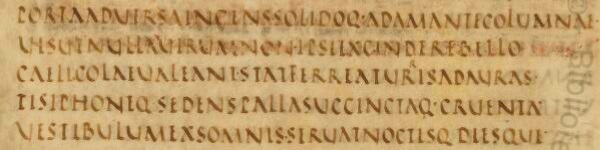 PORTAADVERSAINGENSSOLIDOQ·ADAMANTECOLUMNAE·
VISUTNULLAVIRUMNONIPSIEXCINDEREBELLO
CAELICOLAEVALEANTSTATFERREATURRISADAURAS·
TISIPHONEQ·SEDENSPALLASUCCINCTAQ·CRUENTA
VESTIBULUMEXSOMNISSERUATNOCTESQ·DIESQUE